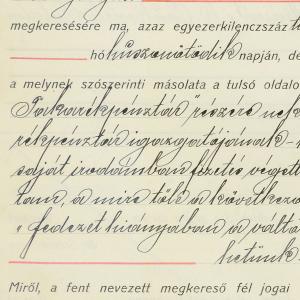 megkeresésére ma, azaz egyezerkilenczszáz
hó huszonötödik napján, de
a melynek szószerinti másolata a tulsó oldalo
Takarékpénztár részére nek
rékpénztár igazgatójának
saját irodámban fizetés végett
tam, a mire tőle a következő
"fedezet hiányában a válta
hetünk
Miről, a fent nevezett megkereső fél jogai